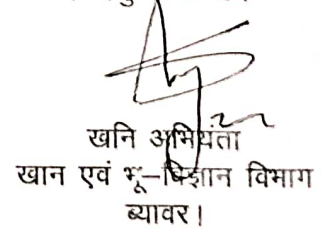 खनि अभियंता
खान एवं भू–विज्ञान विभाग
ब्यावर।